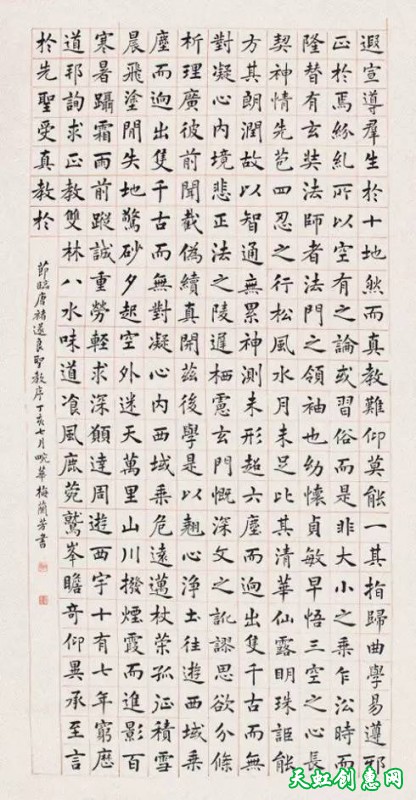 遐宣導羣生於十地然而真教難仰莫能一其指歸曲學易遵邪
正於焉紛糺所以空有之論或習俗而是非大小之乘乍沿時而
隆替有玄奘法師者法門之領袖也幼懷貞敏早悟三空之心長
契神情先苞四忍之行松風水月未足比其清華仙露明珠詎能
方其朗潤故以智通無累神測未形超六塵而迥出隻千古而無
對凝心內境悲正法之陵遲栖慮玄門慨深文之訛謬思欲分條
析理廣彼前聞截偽續真開茲後學是以翹心淨土往遊西域乘
塵而迥出隻千古而無對凝心內西域乘危遠邁杖策孤征積雪
晨飛塗閒失地驚砂夕起空外迷天萬里山川撥煙霞而進影百
寒暑躡霜雨前蹤誠重勞輕求深願達周遊西宇十有七年窮歷
道邦詢求正教雙林八水味道飡風鹿菀鷲峯瞻奇仰異承至言
於先聖受真教於
節臨唐褚遂良聖教序丁亥七月畹華梅蘭芳書
天虹创惠网